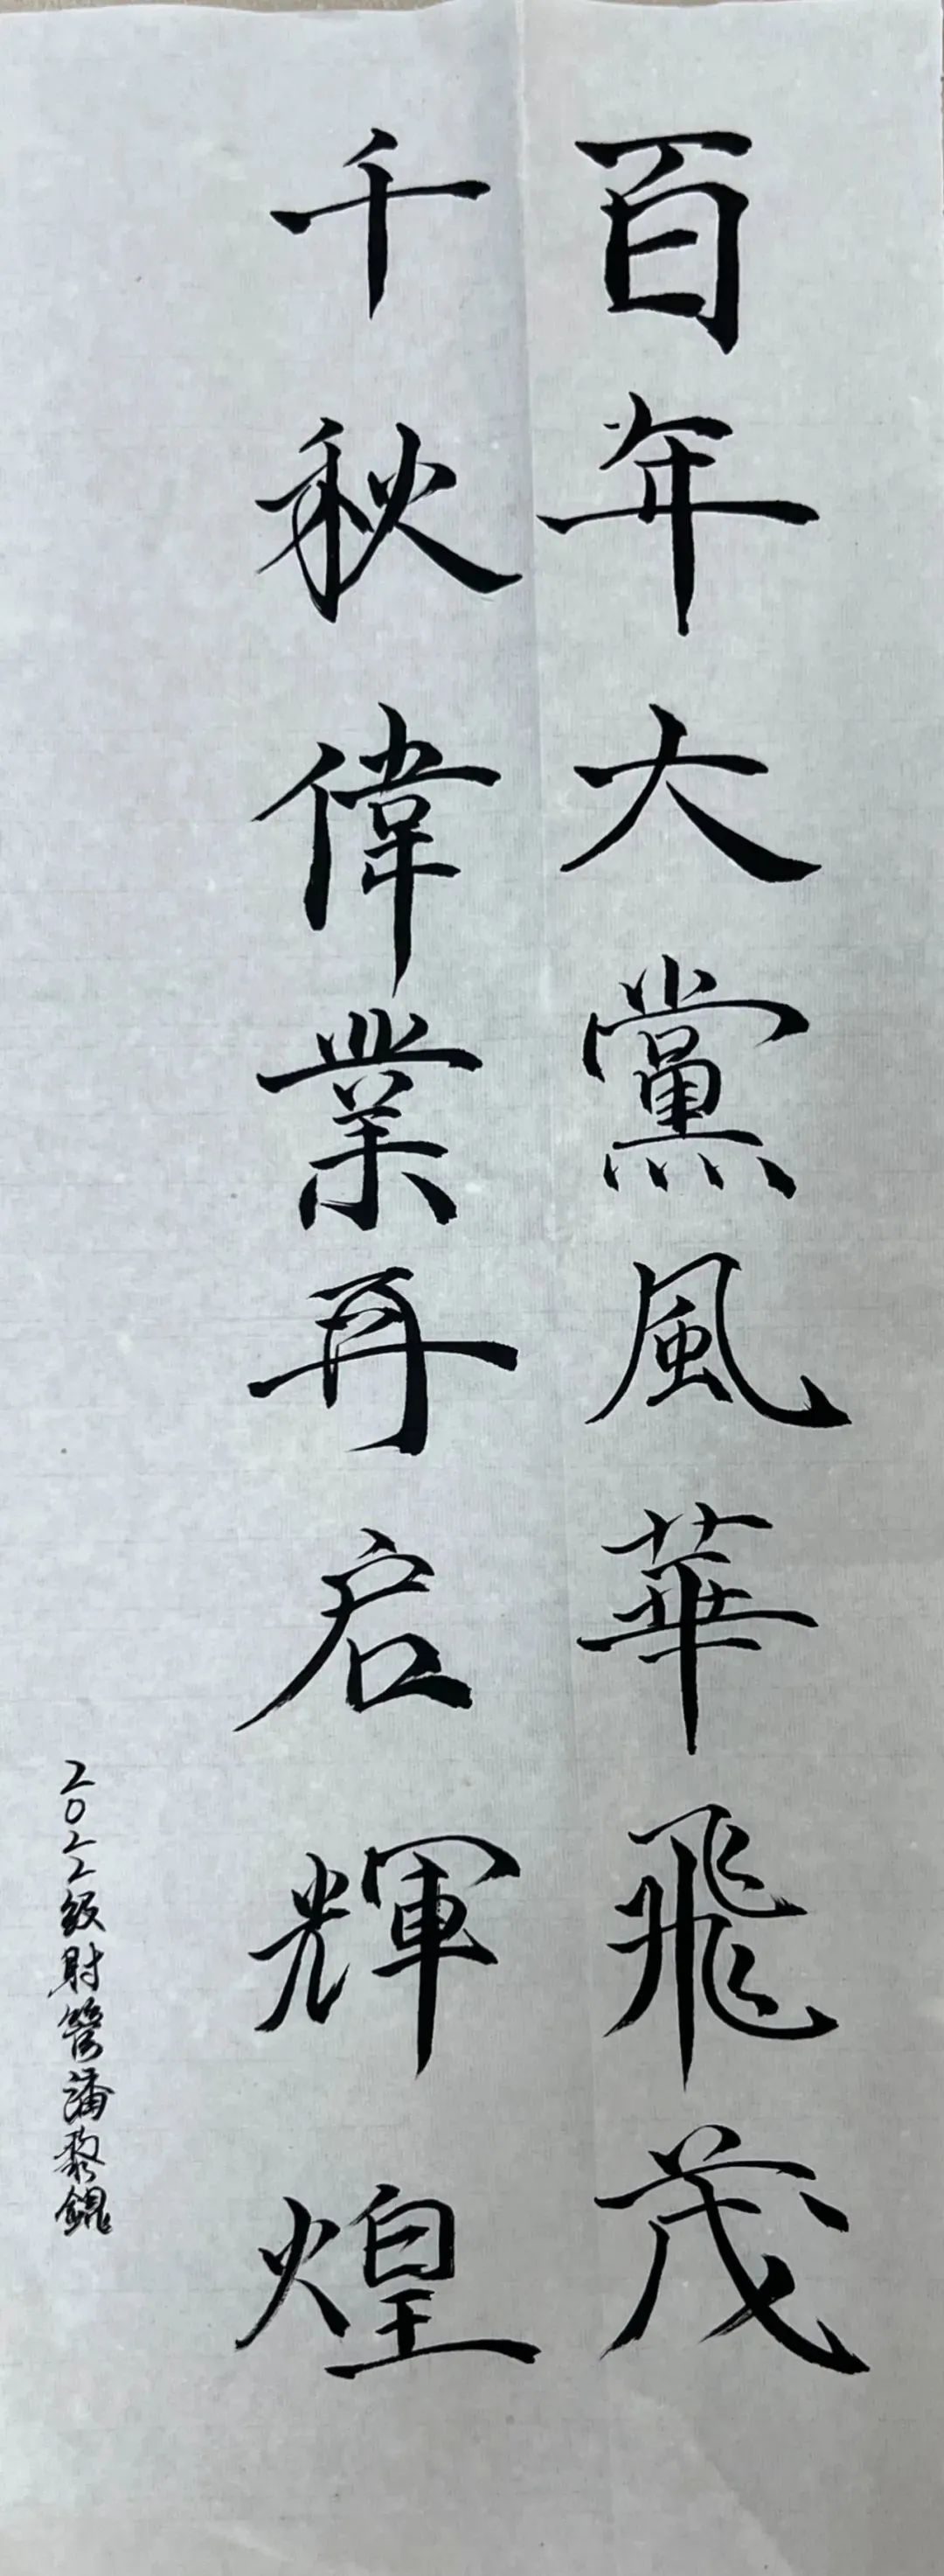 百年大黨風華飛茂
千秋偉業再启輝煌
2022级財管潘黎錕